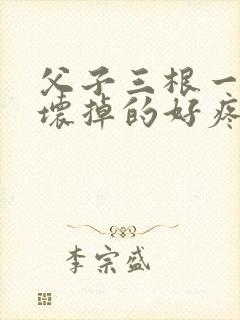 父子三根一
壞掉的好疼
李宗盛